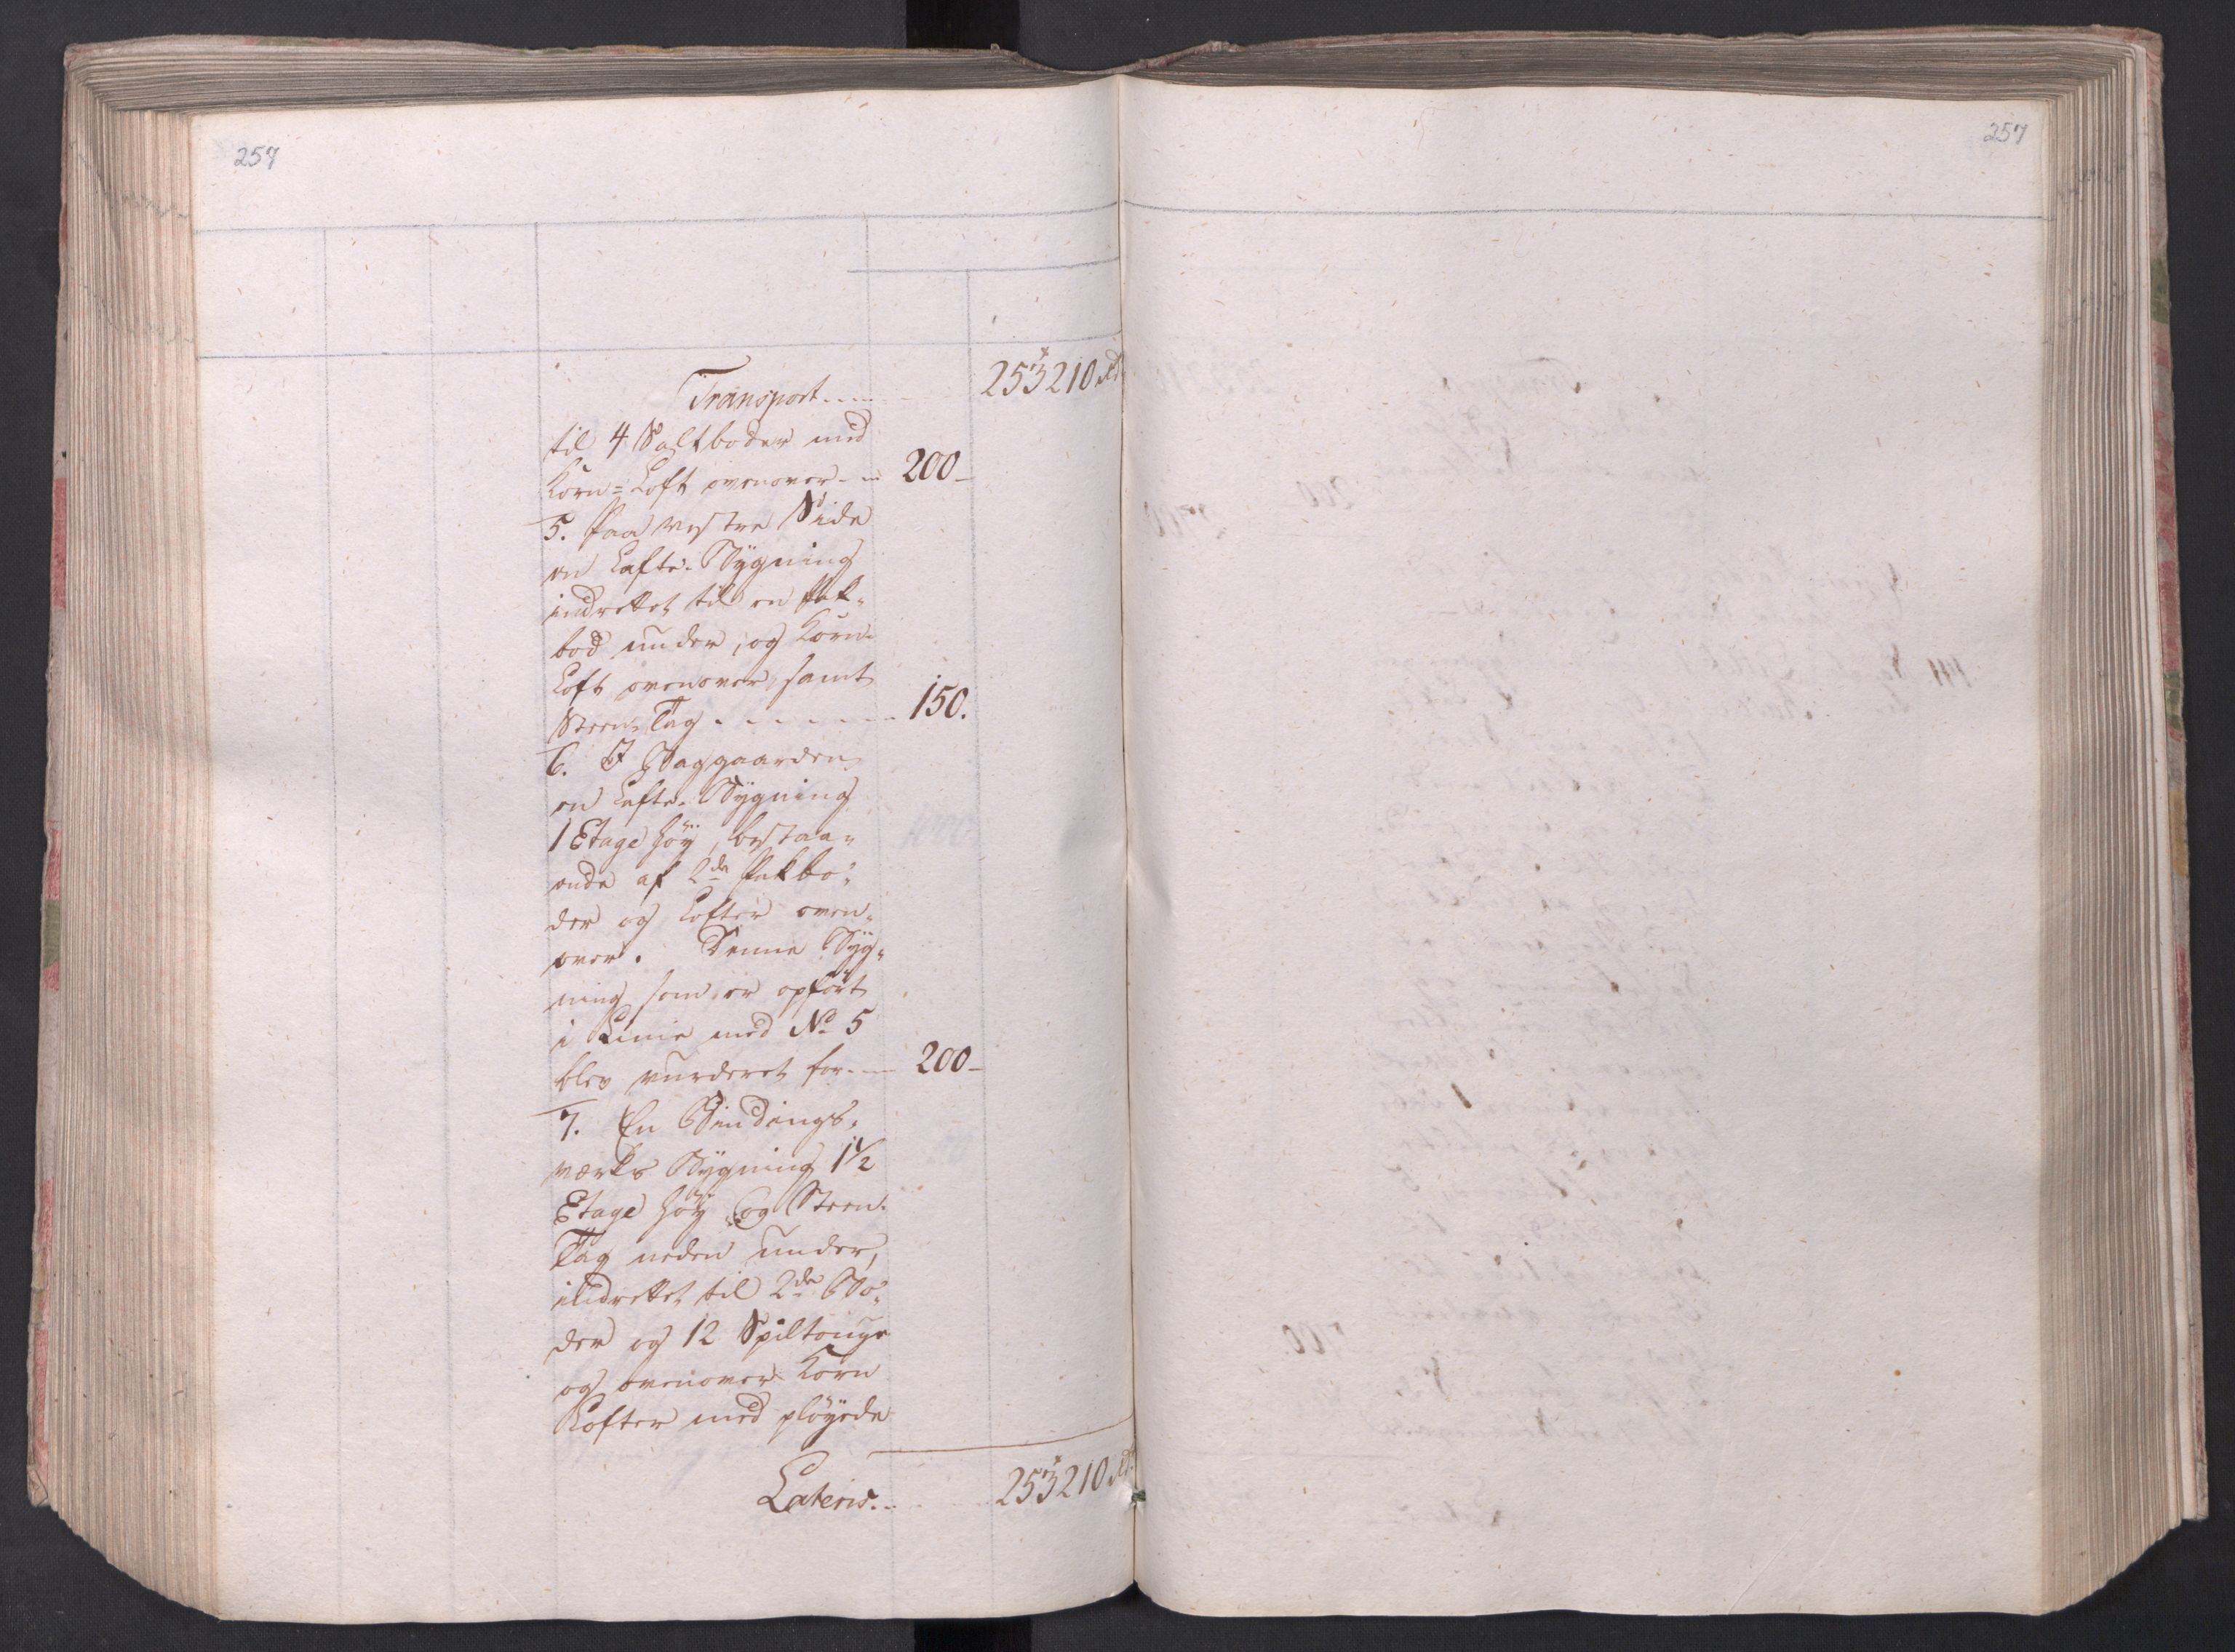 257
257
Transport 253210 rd
til 4 Saltboder med
Korn=Loft ovenover 200
5. Paa vestre Side
en Lafte-Bygning
indrettet til en Pak-
bod under, og Korn-
Loft ovenover samt
Steen-Tag 150.
6. I Baggaarden
en Lafte-Bygning
1 Etage høy, bestaa-
ende af 2de Pakbo-
der og Lofter oven-
over. Denne Byg-
ning som er opført
i Linie med No 5
blev vurderet for 200
7. En Bindings-
værks Bygning 1½
Etage høy og Steen-
Tag neden under,
indrettet til 2de Bo-
der og 12 Spiltouge
og ovenover Korn
Lofter med pløyede
Lateris 253210 rd